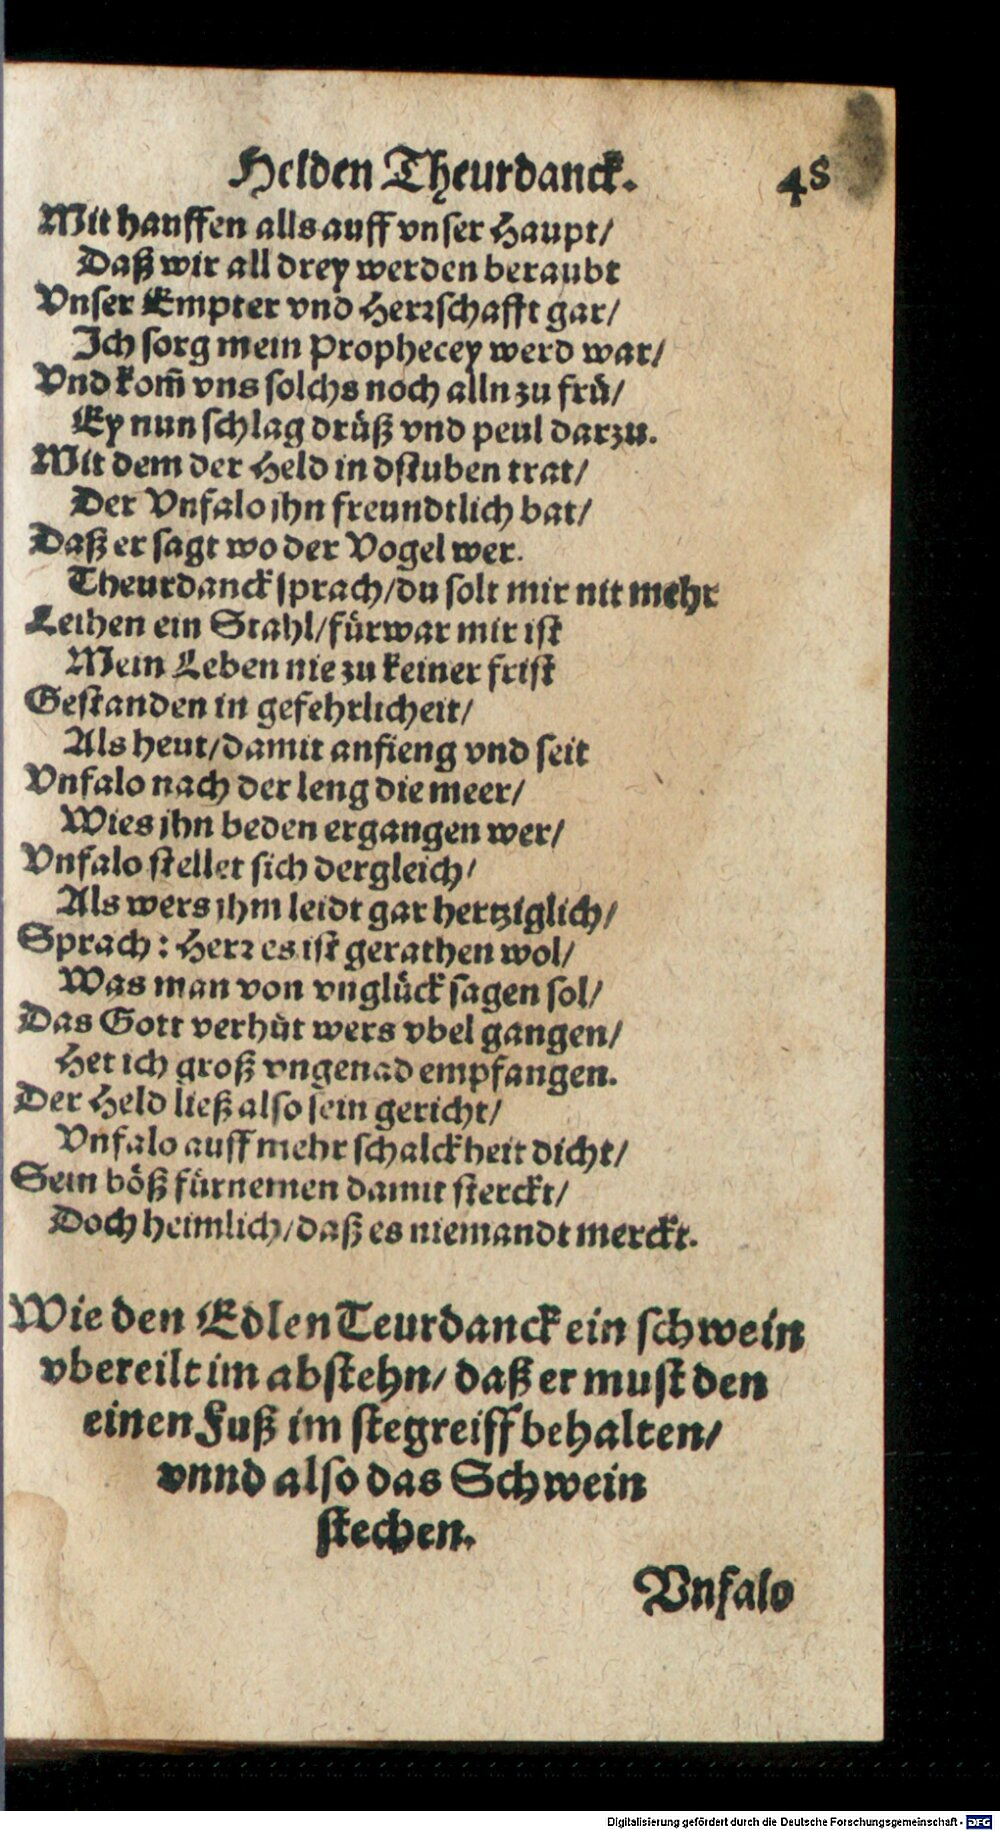 Helden Theurdanck. 48
Mit hauffen alls auff vnser Haupt/
Daß wir all drey werden beraubt
Vnser Empter vnd Herrschafft gar/
Ich sorg mein Prophecey werd war/
Vnd kom̃ vns solchs noch alln zu frü/
Ey nun schlag drüß vnd peul darzu.
Mit dem der Held in dstuben trat/
Der Vnfalo jhn freundtlich bat/
Daß er sagt wo der Vogel wer.
Theurdanck sprach/du solt mir nit mehr
Leihen ein Stahl/fürwar mir ist
Mein Leben nie zu keiner frist
Gestanden in gefehrlicheit/
Als heut/damit anfieng vnd seit
Vnfalo nach der leng die meer/
Wies jhn beden ergangen wer/
Vnfalo stellet sich dergleich/
Als wers jhm leidt gar hertziglich/
Sprach: Herr es ist gerathen wol/
Was man von vnglück sagen sol/
Das Gott verhüt wers vbel gangen/
Het ich groß vngenad empfangen.
Der Held ließ also sein gericht/
Vnfalo auff mehr schalckheit dicht/
Sein böß fürnemen damit sterckt/
Doch heimlich/daß es niemandt merckt.
Wie den Edlen Teurdanck ein schwein
vbereilt im abstehn/ daß er must den
einen Fuß im stegreiff behalten/
vnnd also das Schwein
stechen.
Vnfalo
Digitalisierung gefördert durch die Deutsche Forschungsgemeinschaft - DFG